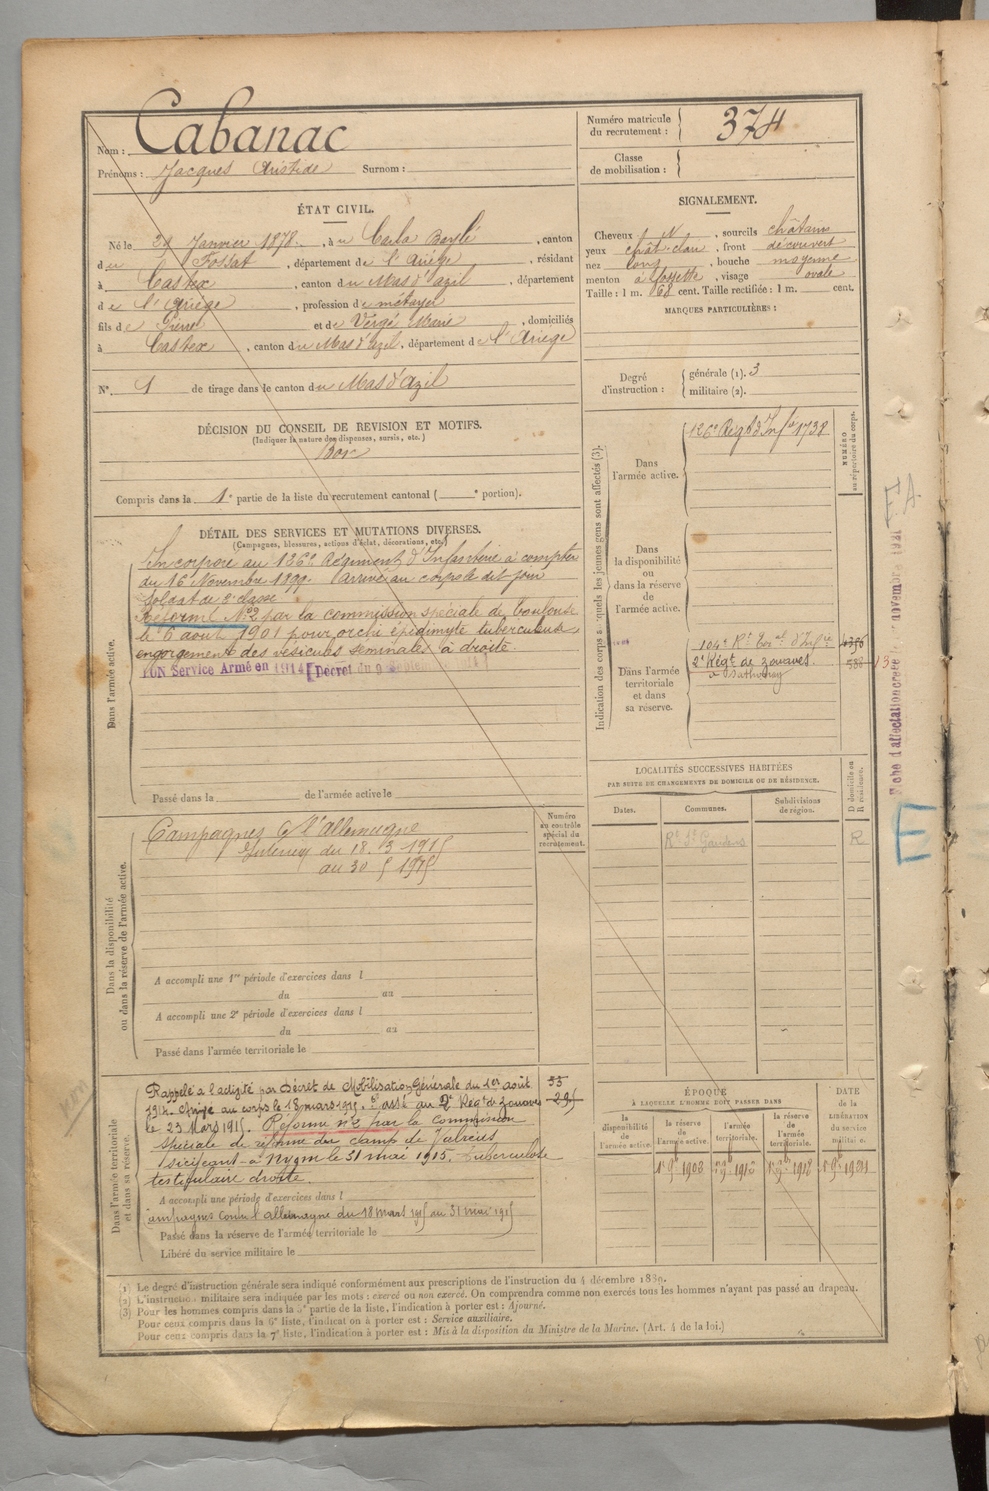 Nom : Cabanac
Prénoms : Jacques Aristide Surnom :
Numéro matricule du recrutement : 374
Classe de mobilisation :
ÉTAT CIVIL.
Né le Janvier 1878, à u Carla Bayle, canton
d u Fossat, département de l'Ariège, résidant
à Castex, canton du Mas d'azil, département
de l'Ariège, profession de métayer
fils de Pierre et de Vergé Marie, domiciliés
à Castex, canton du Mas d'azil, département de l'Ariège
N° 1 de tirage dans le canton du Mas d'Azil
SIGNALEMENT.
Cheveux N, sourcils châtains
yeux chât. clair, front découvert
nez long, bouche moyenne
menton à fossette, visage ovale
Taille : 1 m. 68 cent. Taille rectifiée : 1 m. cent.
MARQUES PARTICULIÈRES :
Degré d'instruction : générale (1). 3
militaire (2).
DÉCISION DU CONSEIL DE REVISION ET MOTIFS.
(Indiquer la nature des dispenses, sursis, etc.)
Bon
Compris dans la 1e partie de la liste du recrutement cantonal ( e portion).
DÉTAIL DES SERVICES ET MUTATIONS DIVERSES.
(Campagnes, blessures, actions d'éclat, décorations, etc.)
Dans l'armée active.
Incorporé au 126e Régiment d'Infanterie à compter
du 16 Novembre 1899. Arrivé au corps le dit jour
Soldat de 2e classe
Réformé N°2 par la commission spéciale de Toulouse
le 6 août 1901 pour orchi épididymite tuberculeuse
engorgement des vésicules séminales à droite.
BON Service Armé en 1914 [Décret du 9
Passé dans la de l'armée active le
Indication des corps auxquels les jeunes gens sont affectés (3).
NUMÉRO au répertoire du corps.
Dans l'armée active.
126e Régt d'Infie 1738
Dans la disponibilité ou dans la réserve de l'armée active.
Dans l'armée territoriale et dans sa réserve.
104e Rt Ter al d'Infie
2e Régt de zouaves. 588
à Sathonay
Fiche d'affectation créée le novembre 1921
E.A.
E
LOCALITÉS SUCCESSIVES HABITÉES
PAR SUITE DE CHANGEMENTS DE DOMICILE OU DE RÉSIDENCE.
Dates. Communes. Subdivisions de région. D domicile ou R résidence.
Rt St Gaudens R
Dans la disponibilité ou dans la réserve de l'armée active.
Numéro au contrôle spécial du recrutement.
Campagnes C/ l'allemagne
Intérieur du 18.3 1915
au 30 5 1915
A accompli une 1re période d'exercices dans l
du au
A accompli une 2e période d'exercices dans l
du au
Passé dans l'armée territoriale le
Dans l'armée territoriale et dans sa réserve.
Rappelé à l'activité par Décret de Mobilisation Générale du 1er août
1914. Arrivé au corps le 18 mars 1915. Passé au 2e Régt de zouaves
le 23 Mars 1915. Réformé n°2 par la Commission
Spéciale de réforme du camp de Valréas
Siégeant à Nyons le 31 mai 1915. Tuberculose
testiculaire droite.
A accompli une période d'exercices dans l
Campagnes contre l'allemagne du 18 mars 1915 au 31 mai 1915
Passé dans la réserve de l'armée territoriale le
Libéré du service militaire le
ÉPOQUE
À LAQUELLE L'HOMME DOIT PASSER DANS
DATE de la LIBÉRATION du service militaire.
la disponibilité de l'armée active. la réserve de l'armée active. l'armée territoriale. la réserve de l'armée territoriale.
1er 9b 1902 1912 1er 9b 1918
(1) Le degré d'instruction générale sera indiqué conformément aux prescriptions de l'instruction du 4 décembre 1889.
(2) L'instruction militaire sera indiquée par les mots : exercé ou non exercé. On comprendra comme non exercés tous les hommes n'ayant pas passé au drapeau.
(3) Pour les hommes compris dans la partie de la liste, l'indication à porter est : Ajourné.
Pour ceux compris dans la 6e liste, l'indication à porter est : Service auxiliaire.
Pour ceux compris dans la 7e liste, l'indication à porter est : Mis à la disposition du Ministre de la Marine. (Art. 4 de la loi.)